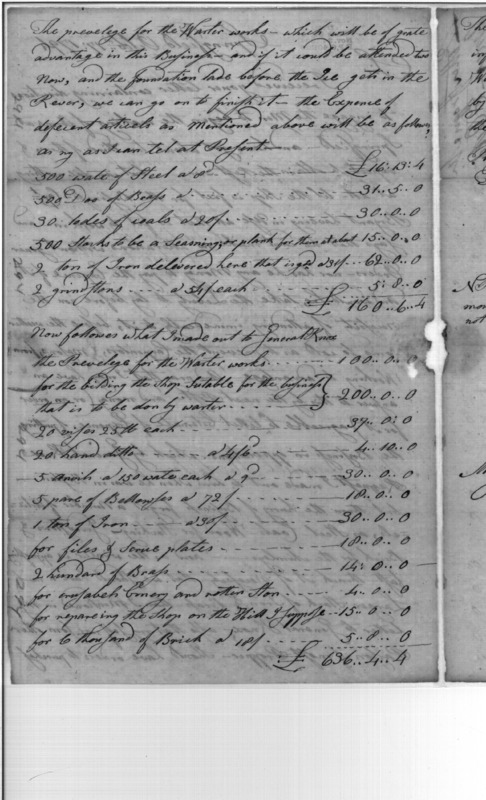 The prevelege for the Warter works — which will be of grate
advantage in this Business — and if it could be attended two
Now, and the foundation lade before the Ice gets in the
Rever, we can go on to finish it — the Expence of
deferent artiels as Mentioned above will be as follows,
as ny as I can tel at Present —
500 wate of Steel a 8d £16..13..4
500 Do of Brass a 31..5..0
30 lodes of coals a 20/. 30..0..0
500 Stocks to be a Seasning, or plank for them at about 15..0..0
2 tons of Iron delivered here that is good a 31£ 62..0..0
2 grindstons a 54/ each 5..8..0
£ 160..6..4
Now follows what I made out to General Knox
the Prevelege for the Warter works 100..0..0
for the bilding the Shop Sutable for the business
that is to be don by warter 200..0..0
20 vises 25 lb each 37..0..0
20 hand ditto a 4/6 4..10..0
5 anvils a 130 wate each a 9d 30..0..0
5 pare of Bellowses a 72/ 18..0..0
1 ton of Iron a 30£ 30..0..0
for files & Scrue plates 18..0..0
2 hundard of Brass 14..0..0
for Emery and rotten Ston 4..0..0
for repareing the Shop on the Hill I suppose 15..0..0
for 6 thousand of Brick a 18/ 5..8..0
£ 636..4..4